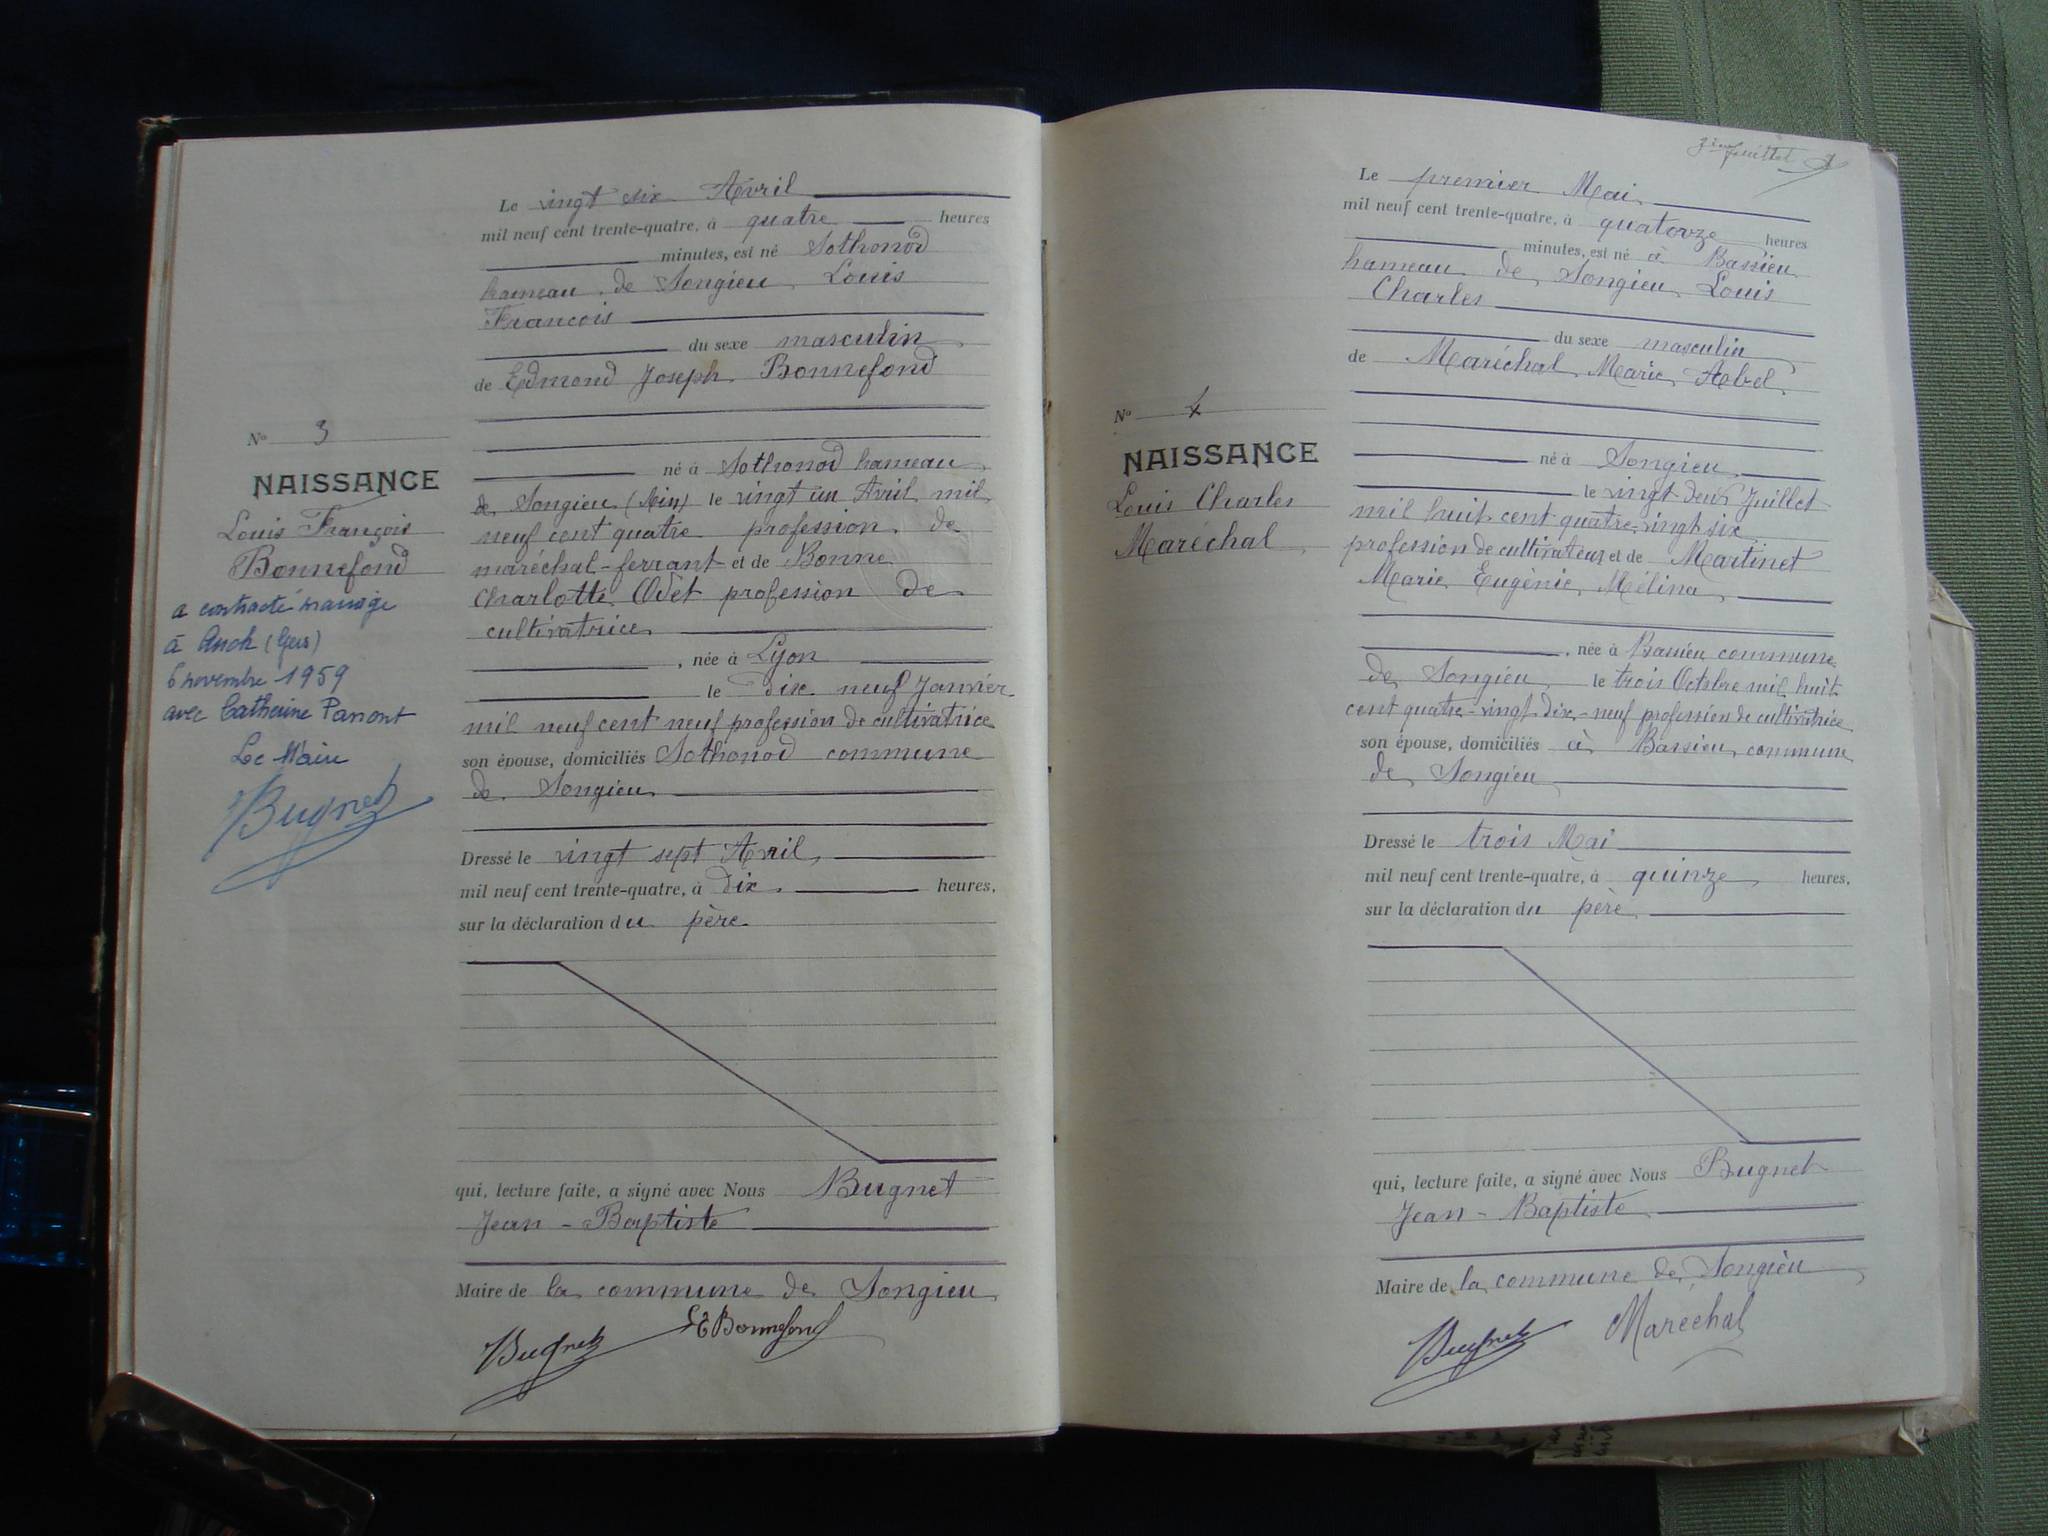 Le vingt six Avril
mil neuf cent trente-quatre, à quatre heures
minutes, est né Sothonod
hameau de Songieu Louis
François
du sexe masculin
de Edmond Joseph Bonnefond
né à Sothonod hameau
de Songieu (Ain) le vingt un Avril mil
neuf cent quatre profession de
maréchal-ferrant et de Bonne
Charlotte Odet profession de
cultivatrice
, née à Lyon
le dix neuf Janvier
mil neuf cent neuf profession de cultivatrice
son épouse, domiciliés Sothonod commune
de Songieu
Dressé le vingt sept Avril
mil neuf cent trente-quatre, à dix heures,
sur la déclaration du père
qui, lecture faite, a signé avec Nous Bugnet
Jean-Baptiste
Maire de la commune de Songieu
Bugnet E Bonnefond
No 3
NAISSANCE
Louis François
Bonnefond
a contracté mariage
à Auch (Gers)
6 novembre 1959
avec Catherine
Le Maire
Bugnet
3ème feuillet
Le premier Mai
mil neuf cent trente-quatre, à quatorze heures
minutes, est né à Bassieu
hameau de Songieu Louis
Charles
du sexe masculin
de Maréchal Marie Abel
né à Songieu
le vingt deux Juillet
mil huit cent quatre-vingt six
profession de cultivateur et de Martinet
Marie Eugénie Mélina
, née à Bassieu commune
de Songieu le trois Octobre mil huit
cent quatre-vingt dix-neuf profession de cultivatrice
son épouse, domiciliés à Bassieu commune
de Songieu
Dressé le trois Mai
mil neuf cent trente-quatre, à quinze heures,
sur la déclaration du père
qui, lecture faite, a signé avec Nous Bugnet
Jean-Baptiste
Maire de la commune de Songieu
Bugnet Maréchal
No 4
NAISSANCE
Louis Charles
Maréchal